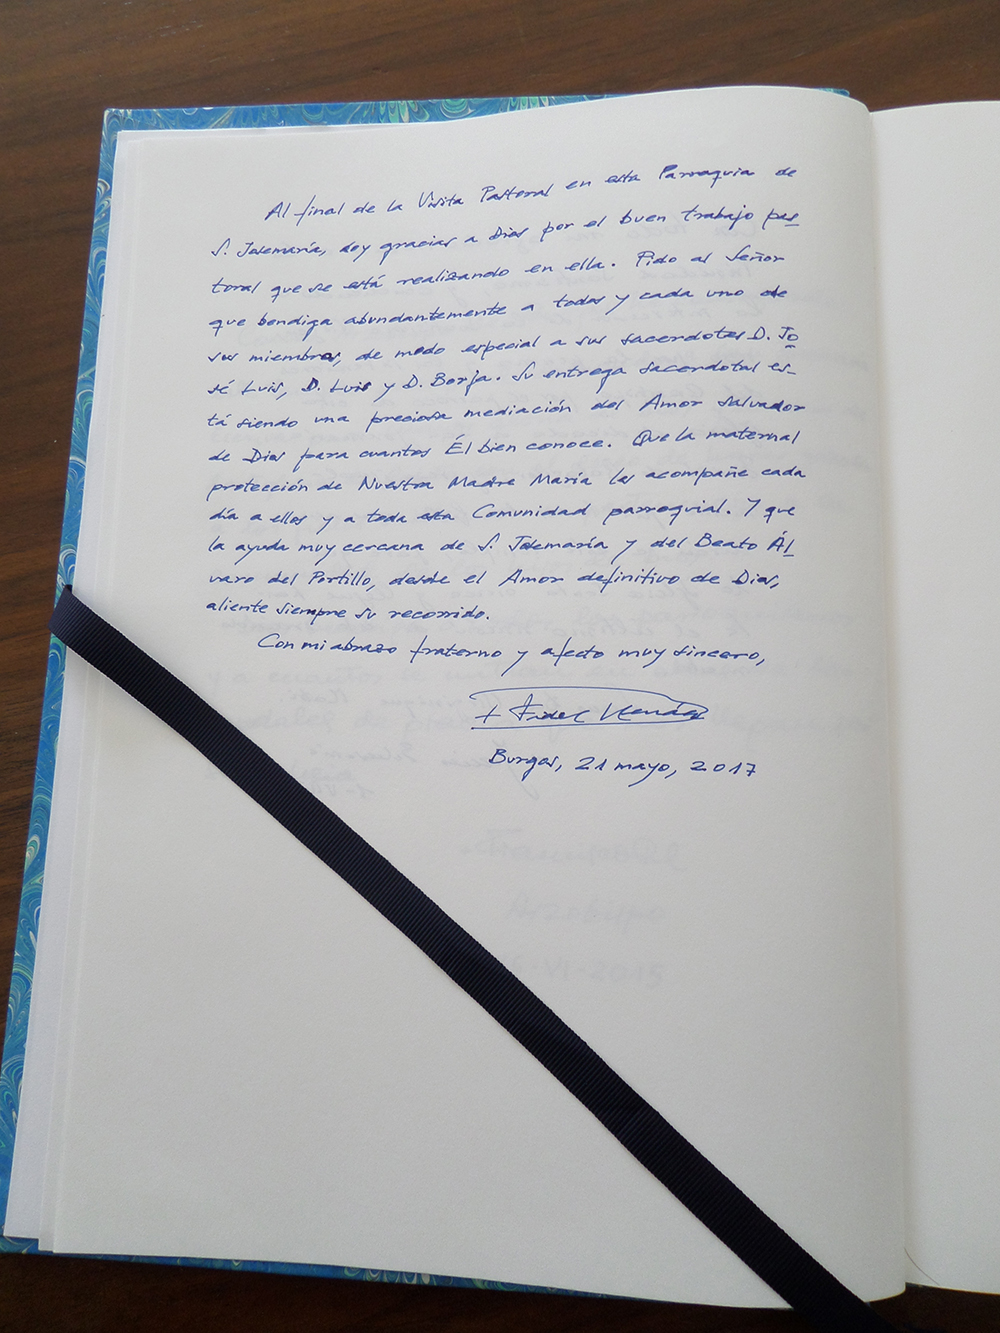 Al final de la Visita Pastoral en esta Parroquia de
S. Josemaría, doy gracias a Dios por el buen trabajo pas-
toral que se está realizando en ella. Pido al Señor
que bendiga abundantemente a todos y cada uno de
sus miembros, de modo especial a sus sacerdotes D. Jo
sé Luis, D. Luis y D. Borja. Su entrega sacerdotal es-
tá siendo una preciosa mediación del Amor Salvador
de Dios para cuantos Él bien conoce. Que la maternal
protección de Nuestra Madre María les acompañe cada
día a ellos y a toda esta Comunidad parroquial. Y que
la ayuda muy cercana de S. Josemaría y del Beato Ál-
varo del Portillo, desde el Amor definitivo de Dios,
aliente siempre su recorrido.
Con mi abrazo fraterno y afecto muy sincero,
+ Fidel Herráez
Burgos, 21 mayo, 2017
Arzobispo
VI-2015